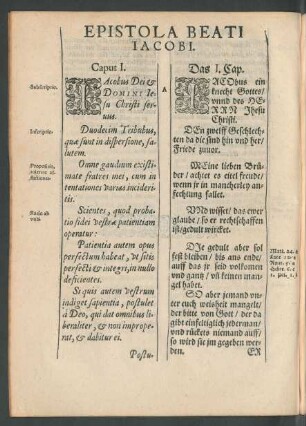 EPISTOLA BEATI
IACOBI.
Caput I.
Subscriptio.
IAcobus Dei &
DOMINI Ie-
su Christi ser-
uus.
Inscriptio.
Duodecim Tribubus,
quæ sunt in dispersione, sa-
lutem.
Omne gaudium existi-
mate fratres mei, cum in
tentationes varias incideri-
tis.
Scientes, quod proba-
tio fidei vestræ patientiam
operatur:
Patientia autem opus
perfectum habeat, vt sitis
perfecti & integri, in nullo
deficientes.
Si quis autem vestrum
indiget sapientia, postulet
à Deo, qui dat omnibus li-
beraliter, & non imprope-
rat, & dabitur ei.
Postu-
A
Das I. Cap.
IACObus ein
knecht Gottes/
vnnd des HE-
RRN Jhesu
Christi.
DEn zwelff Geschlech-
ten da die sind hin vnd her/
Friede zuuor.
MEine lieben Brü-
der / achtet es eitel freude/
wenn jr in mancherley an-
fechtung fallet.
VNd wisset/ das ewer
glaube/ so er rechtschaffen
ist/ gedult wircket.
DJe gedult aber sol
fest bleiben/ bis ans ende/
auff das jr seid volkomen
vnd gantz/ vñ keinen man-
gel habet.
SO aber jemand vn-
ter euch weisheit mangelt/
der bitte von Gott/ der da
gibt einfeltiglich jederman/
vnd rückets niemand auff/
so wird sie jm gegeben wer-
den.
ER